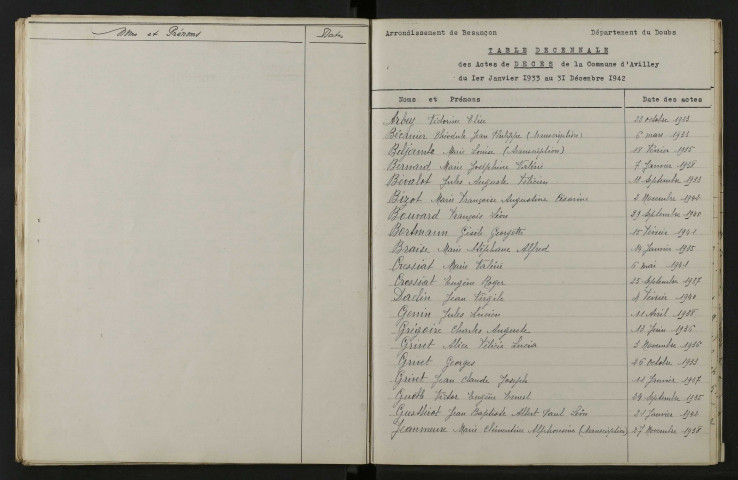 Noms et Prénoms
Dates
Arrondissement de Besançon
Département du Doubs
TABLE DECENNALE
des Actes de DECES de la Commune d'Avilley
du 1er Janvier 1933 au 31 Décembre 1942
Noms et Prénoms
Date des actes
Arbey Victorine Elise 22 octobre 1933
Théodule Jean Philippe (transcription) 6 mars 1933
Marie Louise (transcription) 18 Février
Bernard Marie Joséphine Valérie 7 Janvier 1938
Bévalot Jules Auguste 11 Septembre 1933
Bizot Marie Françoise Augustine Césarine 2 Novembre 1942
Bouvard François Léon 29 Septembre 1940
Bertmann Gisèle Georgette 15 Février 1941
Braise Marie Stéphane Alfred 14 Janvier 1935
Cressiat Marie Valérie 6 mai 1941
Cressiat Eugène Roger 25 Septembre 1937
Daclin Jean Virgile 4 Février 1940
Genin Jules Lucien 11 Avril 1938
Grégoire Charles Auguste 12 Juin 1936
Grivet Alice Lucia 2 Novembre 1936
Grivet Georges 26 Octobre 1933
Grivet Jean Claude Joseph 14 Janvier 1937
Victor Eugène Ernest 24 Septembre 1935
Jean Baptiste Albert Paul Léon 21 Janvier
Marie Clémentine Alphonsine (transcription) 27 Novembre 1938